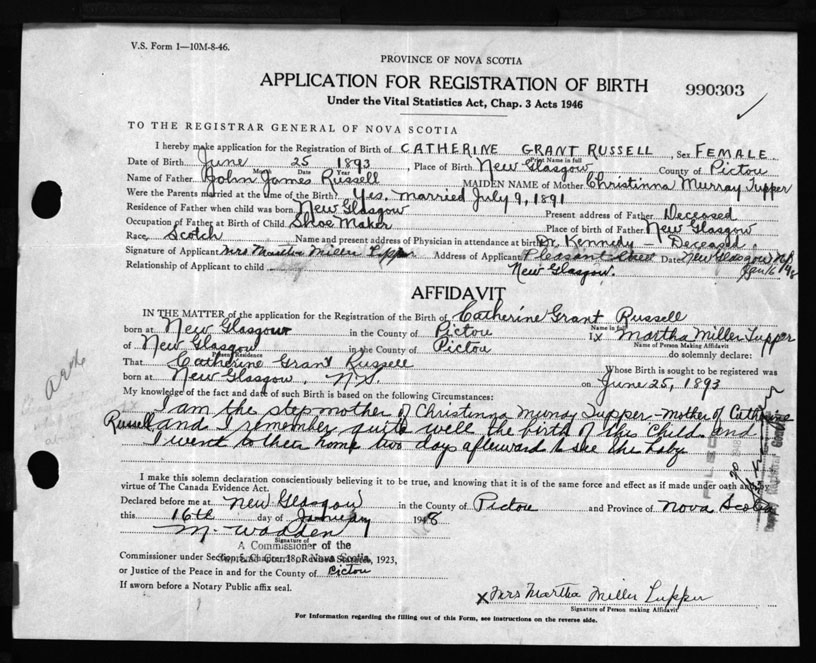 V.S. Form 1—10M-8-46.
PROVINCE OF NOVA SCOTIA
APPLICATION FOR REGISTRATION OF BIRTH
990303
Under the Vital Statistics Act, Chap. 3 Acts 1946
TO THE REGISTRAR GENERAL OF NOVA SCOTIA
I hereby make application for the Registration of Birth of CATHERINE GRANT RUSSELL, Sex FEMALE.
Print Name in full
Date of Birth June 25 1893, Place of Birth New Glasgow County of Pictou
Month Date Year
Name of Father John James Russell MAIDEN NAME of Mother Christinna Murray Tupper
Were the Parents married at the time of the Birth? Yes. Married July 9, 1891
Residence of Father when child was born New Glasgow Present address of Father Deceased
Occupation of Father at Birth of Child Shoe Maker Place of birth of Father New Glasgow
Race, Scotch Name and present address of Physician in attendance at birth Dr. Kennedy - Deceased.
Signature of Applicant Mrs Martha Miller Tupper Address of Applicant Pleasant Date New Glasgow N.S.
Relationship of Applicant to child New Glasgow. Jan 16
AFFIDAVIT
IN THE MATTER of the application for the Registration of Birth of Catherine Grant Russell
Name in full
born at New Glasgow in the County of Pictou I, x Martha Miller Tupper
Name of Person Making Affidavit
of New Glasgow in the County of Pictou do solemnly declare:
Present Residence
That Catherine Grant Russell Whose Birth is sought to be registered was
born at New Glasgow, N.S. on June 25, 1893
My knowledge of the fact and date of such Birth is based on the following Circumstances:
I am the step mother of Christinna Murray Tupper - Mother of Catherine
Russell and I remember quite well the birth of this child and
I went to their home two days afterward to see the baby.
FILED
I make this solemn declaration conscientiously believing it to be true, and knowing that it is of the same force and effect as if made under oath and by
virtue of The Canada Evidence Act.
Declared before me at New Glasgow in the County of Pictou and Province of Nova Scotia
this 16th day of January 1948
M. Wadden
Signature of
A Commissioner of the
Commissioner under Section 5, Chapter 18, of Revised Statutes, 1923,
or Justice of the Peace in and for the County of Pictou
If sworn before a Notary Public affix seal.
x Mrs Martha Miller Tupper
Signature of Person making Affidavit
For Information regarding the filling out of this Form, see instructions on the reverse side.